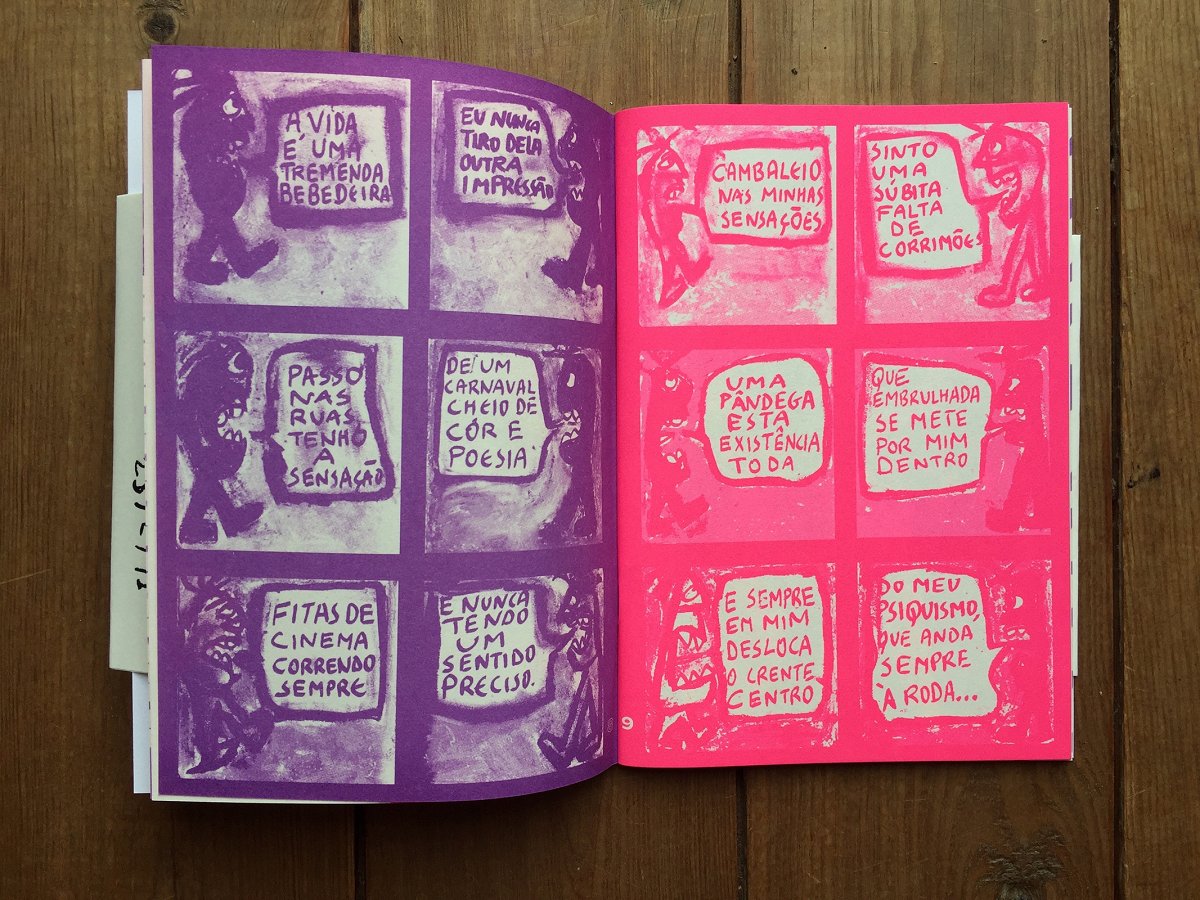 A VIDA
É UMA
TREMENDA
BEBEDEIRA
EU NUNCA
TIRO DELA
OUTRA
IMPRESSÃO
PASSO
NAS
RUAS
TENHO
A
SENSAÇÃO
DE UM
CARNAVAL
CHEIO DE
CÓR E
POESIA
FITAS DE
CINEMA
CORRENDO
SEMPRE
E NUNCA
TENDO
UM
SENTIDO
PRECISO.
CAMBALEIO
NAS MINHAS
SENSAÇÕES
SINTO
UMA
SÚBITA
FALTA
DE
CORRIMÕES
UMA
PÂNDEGA
ESTA
EXISTÊNCIA
TODA
QUE
EMBRULHADA
SE METE
POR MIM
DENTRO
E SEMPRE
EM MIM
DESLOCA
O CRENTE
CENTRO
DO MEU
PSIQUISMO,
QUE ANDA
SEMPRE
À RODA...
9